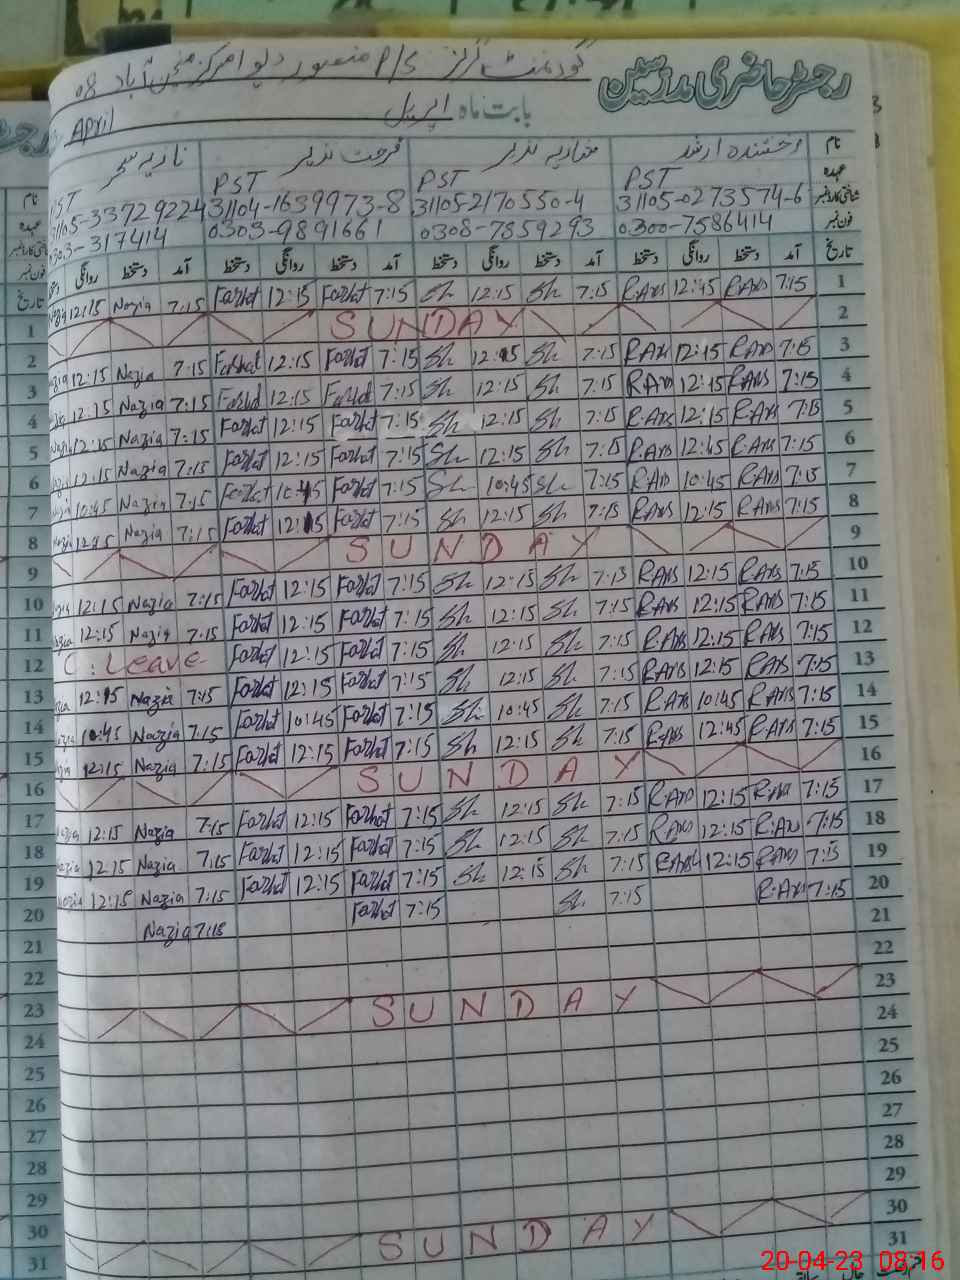 رجسٹر حاضری مدرسین
گورنمنٹ گرلز P/S منصور دیو مرکز منچن آباد 08
بابت ماہ اپریل April
نام رخشندہ ارشد فرحت نذیر نازیہ سحر
عہدہ PST PST PST
شناختی کارڈ نمبر 31105-0273574-6 31105-2170550-4 31104-1639973-8 31105-33729224
فون نمبر 0300-7586414 0308-7859293 0303-9891661 0303-317414
تاریخ آمد دستخط روانگی دستخط آمد دستخط روانگی دستخط آمد دستخط روانگی دستخط آمد دستخط روانگی
1 7:15 R.Axs 12:45 R.Axs 7:15 Sh 12:15 Sh 7:15 Farhat 12:15 Farhat 7:15 Nazia 12:15
2 SUNDAY
3 7:15 R.Axs 12:15 R.Axs 7:15 Sh 12:15 Sh 7:15 Farhat 12:15 Farhat 7:15 Nazia 12:15
4 7:15 R.Axs 12:15 R.Axs 7:15 Sh 12:15 Sh 7:15 Farhat 12:15 Farhat 7:15 Nazia 12:15
5 7:15 R.Axs 12:15 R.Axs 7:15 Sh 12:15 Sh 7:15 Farhat 12:15 Farhat 7:15 Nazia 12:15
6 7:15 R.Axs 12:45 R.Axs 7:15 Sh 12:15 Sh 7:15 Farhat 12:15 Farhat 7:15 Nazia 12:15
7 7:15 R.Axs 10:45 R.Axs 7:15 Sh 10:45 Sh 7:15 Farhat 10:45 Farhat 7:15 Nazia 10:45
8 7:15 R.Axs 12:15 R.Axs 7:15 Sh 12:15 Sh 7:15 Farhat 12:15 Farhat 7:15 Nazia 12:15
9 SUNDAY
10 7:15 R.Axs 12:15 R.Axs 7:15 Sh 12:15 Sh 7:15 Farhat 12:15 Farhat 7:15 Nazia 12:15
11 7:15 R.Axs 12:15 R.Axs 7:15 Sh 12:15 Sh 7:15 Farhat 12:15 Farhat 7:15 Nazia 12:15
12 7:15 R.Axs 12:15 R.Axs 7:15 Sh 12:15 Sh 7:15 Farhat 12:15 Farhat C. Leave
13 7:15 R.Axs 12:15 R.Axs 7:15 Sh 12:15 Sh 7:15 Farhat 12:15 Farhat 7:15 Nazia 12:15
14 7:15 R.Axs 10:45 R.Axs 7:15 Sh 10:45 Sh 7:15 Farhat 10:45 Farhat 7:15 Nazia 10:45
15 7:15 R.Axs 12:45 R.Axs 7:15 Sh 12:15 Sh 7:15 Farhat 12:15 Farhat 7:15 Nazia 12:15
16 SUNDAY
17 7:15 R.Axs 12:15 R.Axs 7:15 Sh 12:15 Sh 7:15 Farhat 12:15 Farhat 7:15 Nazia 12:15
18 7:15 R.Axs 12:15 R.Axs 7:15 Sh 12:15 Sh 7:15 Farhat 12:15 Farhat 7:15 Nazia 12:15
19 7:15 R.Axs 12:15 R.Axs 7:15 Sh 12:15 Sh 7:15 Farhat 12:15 Farhat 7:15 Nazia 12:15
20 7:15 R.Axs 7:15 Sh 7:15 Farhat 7:15 Nazia
21
22
23 SUNDAY
24
25
26
27
28
29
30 SUNDAY
31
نام
عہدہ
شناختی کارڈ نمبر
فون نمبر
تاریخ
1
2
3
4
5
6
7
8
9
10
11
12
13
14
15
16
17
18
19
20
21
22
23
24
25
26
27
28
29
30
31
20-04-23 08:16